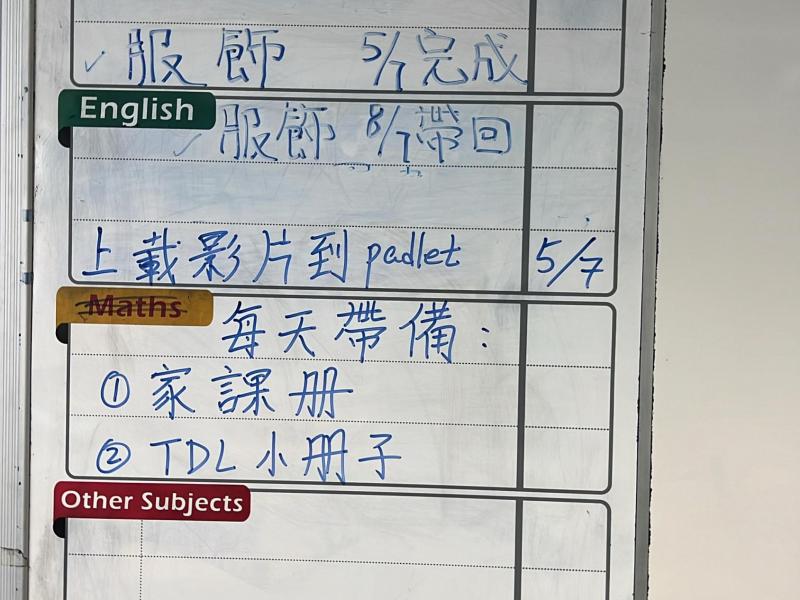 ✓ 服飾 5/7完成
English
✓ 服飾 8/7帶回
上載影片到 padlet 5/7
Maths
每天帶備：
① 家課册
② TDL小册子
Other Subjects